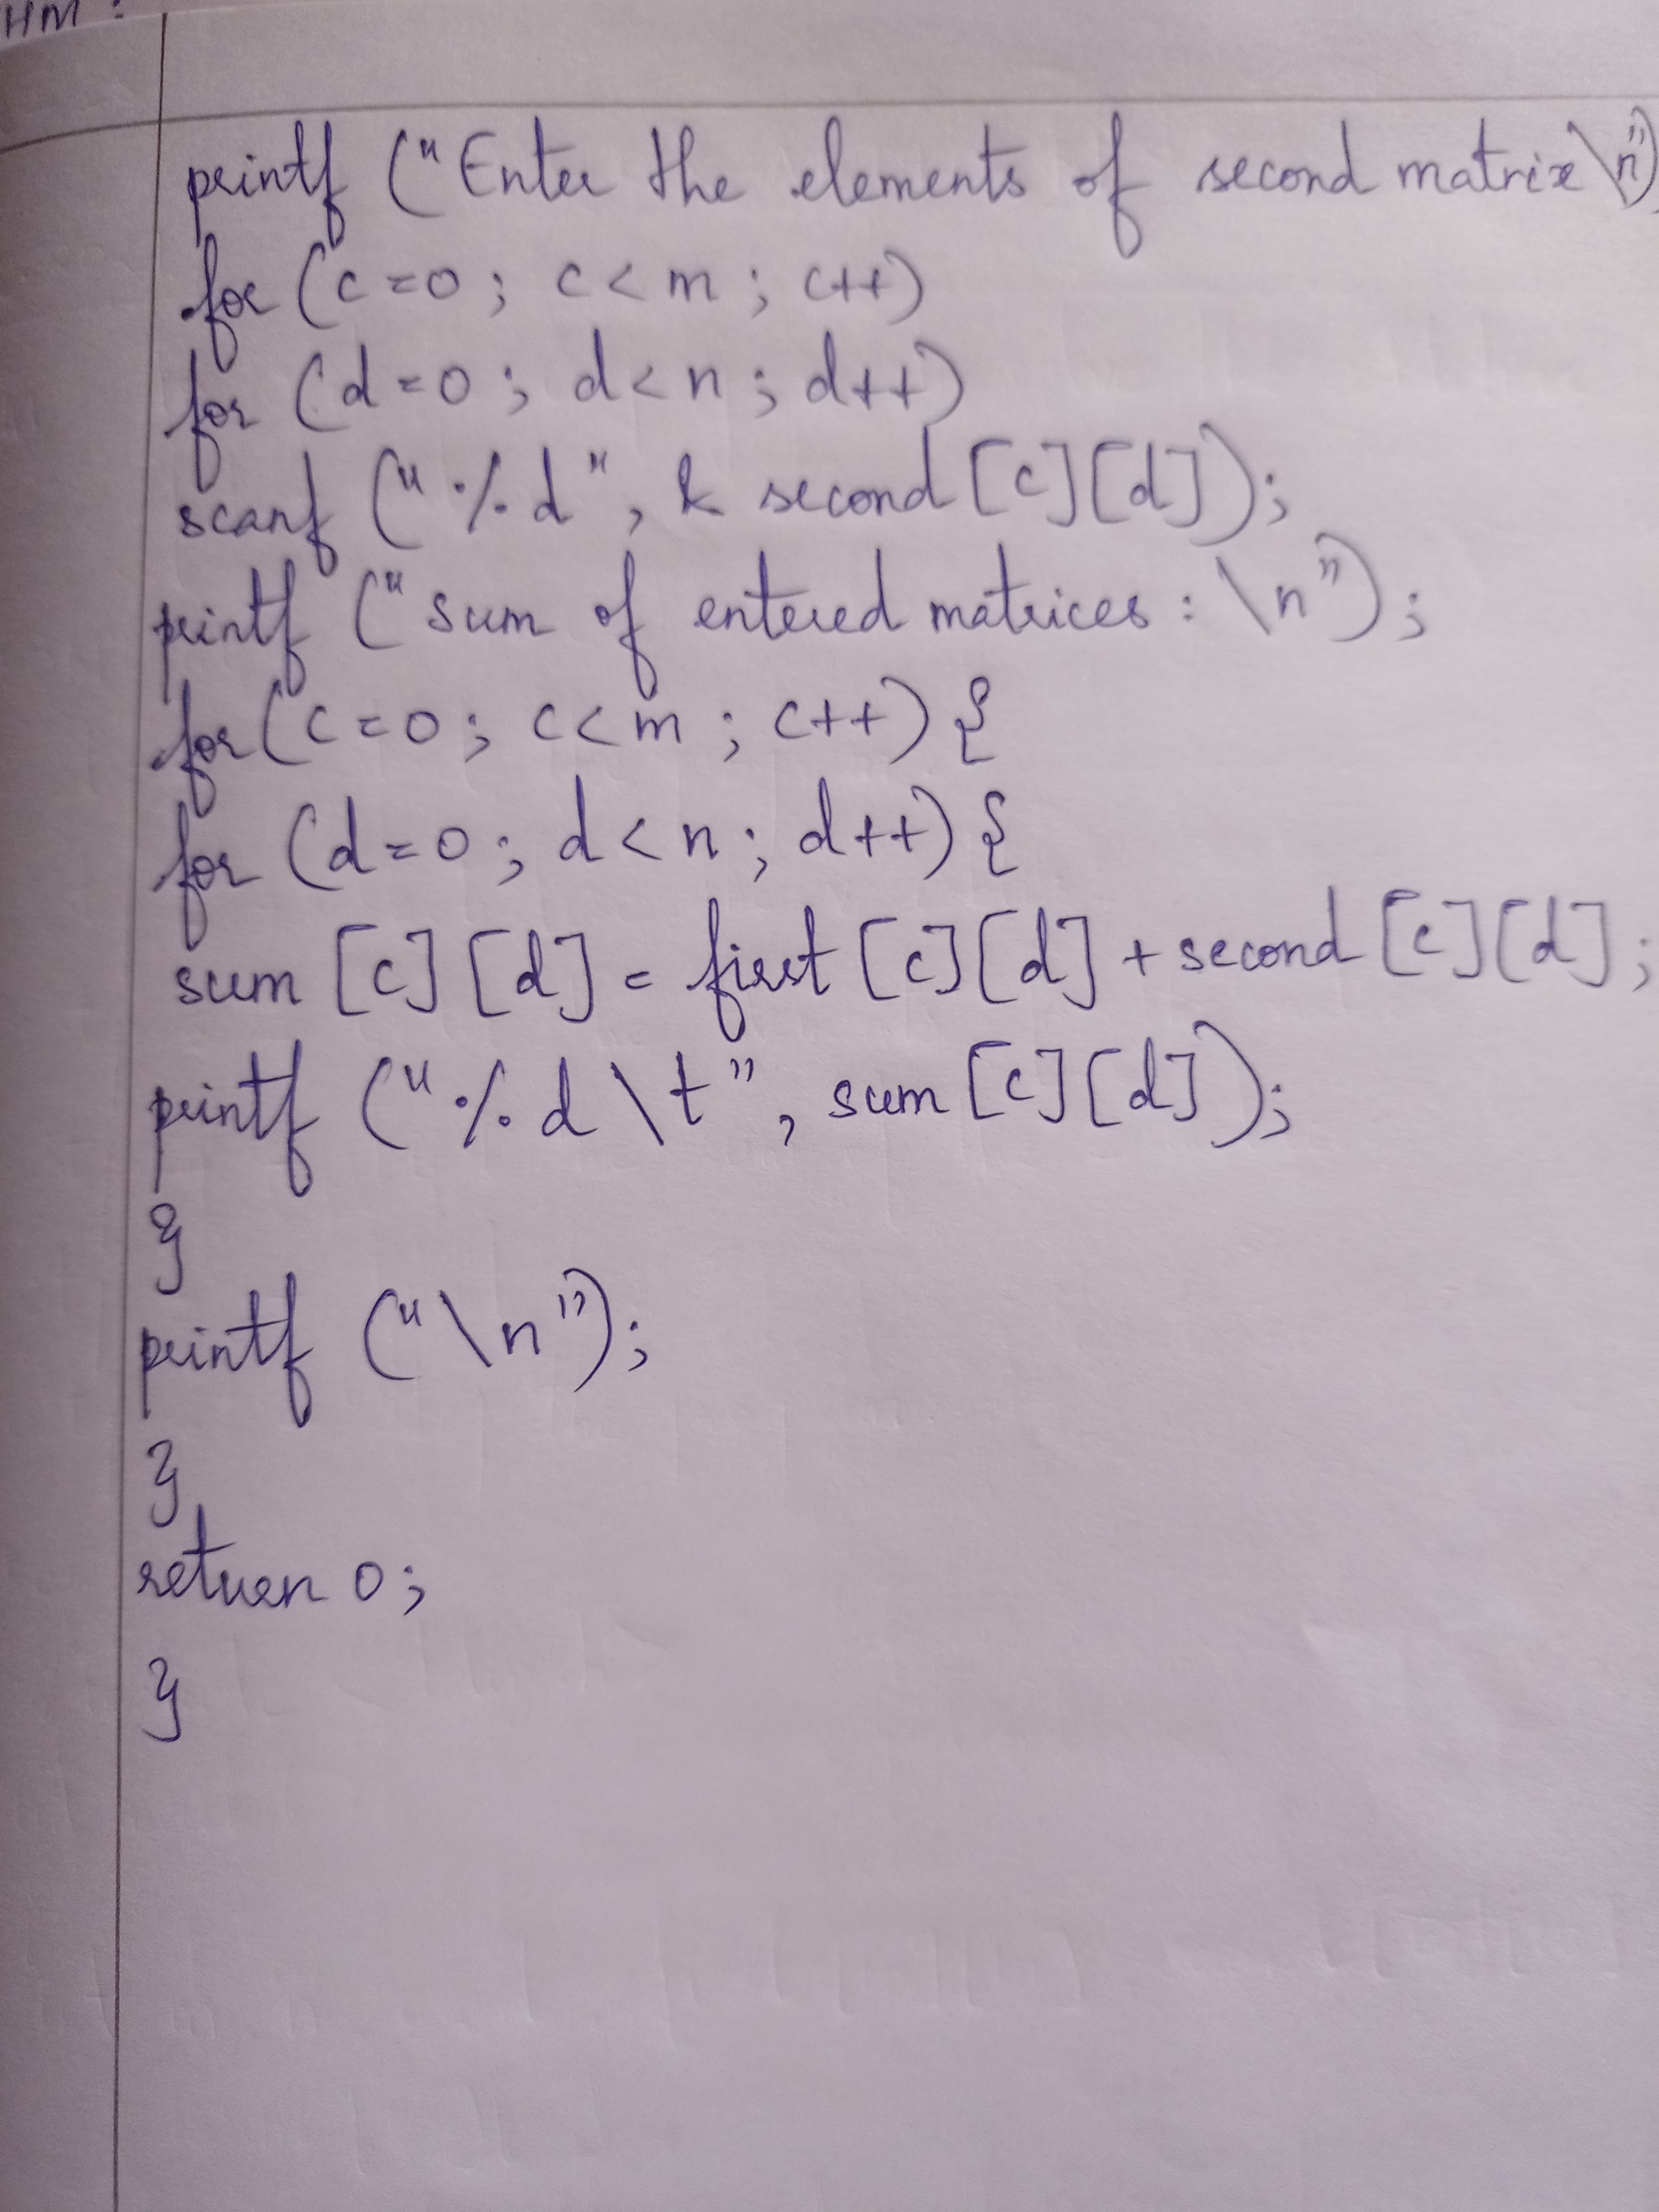 HM :
printf ("Enter the elements of second matrix\n")
for (c=0; c<m; c++)
for (d=0; d<n; d++)
scanf ("%d", & second [c][d]);
printf ("sum of entered matrices : \n");
for (c=0; c<m; c++) {
for (d=0; d<n; d++) {
sum [c][d] = first [c][d] + second [c][d];
printf ("%d \t", sum [c][d]);
}
printf ("\n");
}
return 0;
}